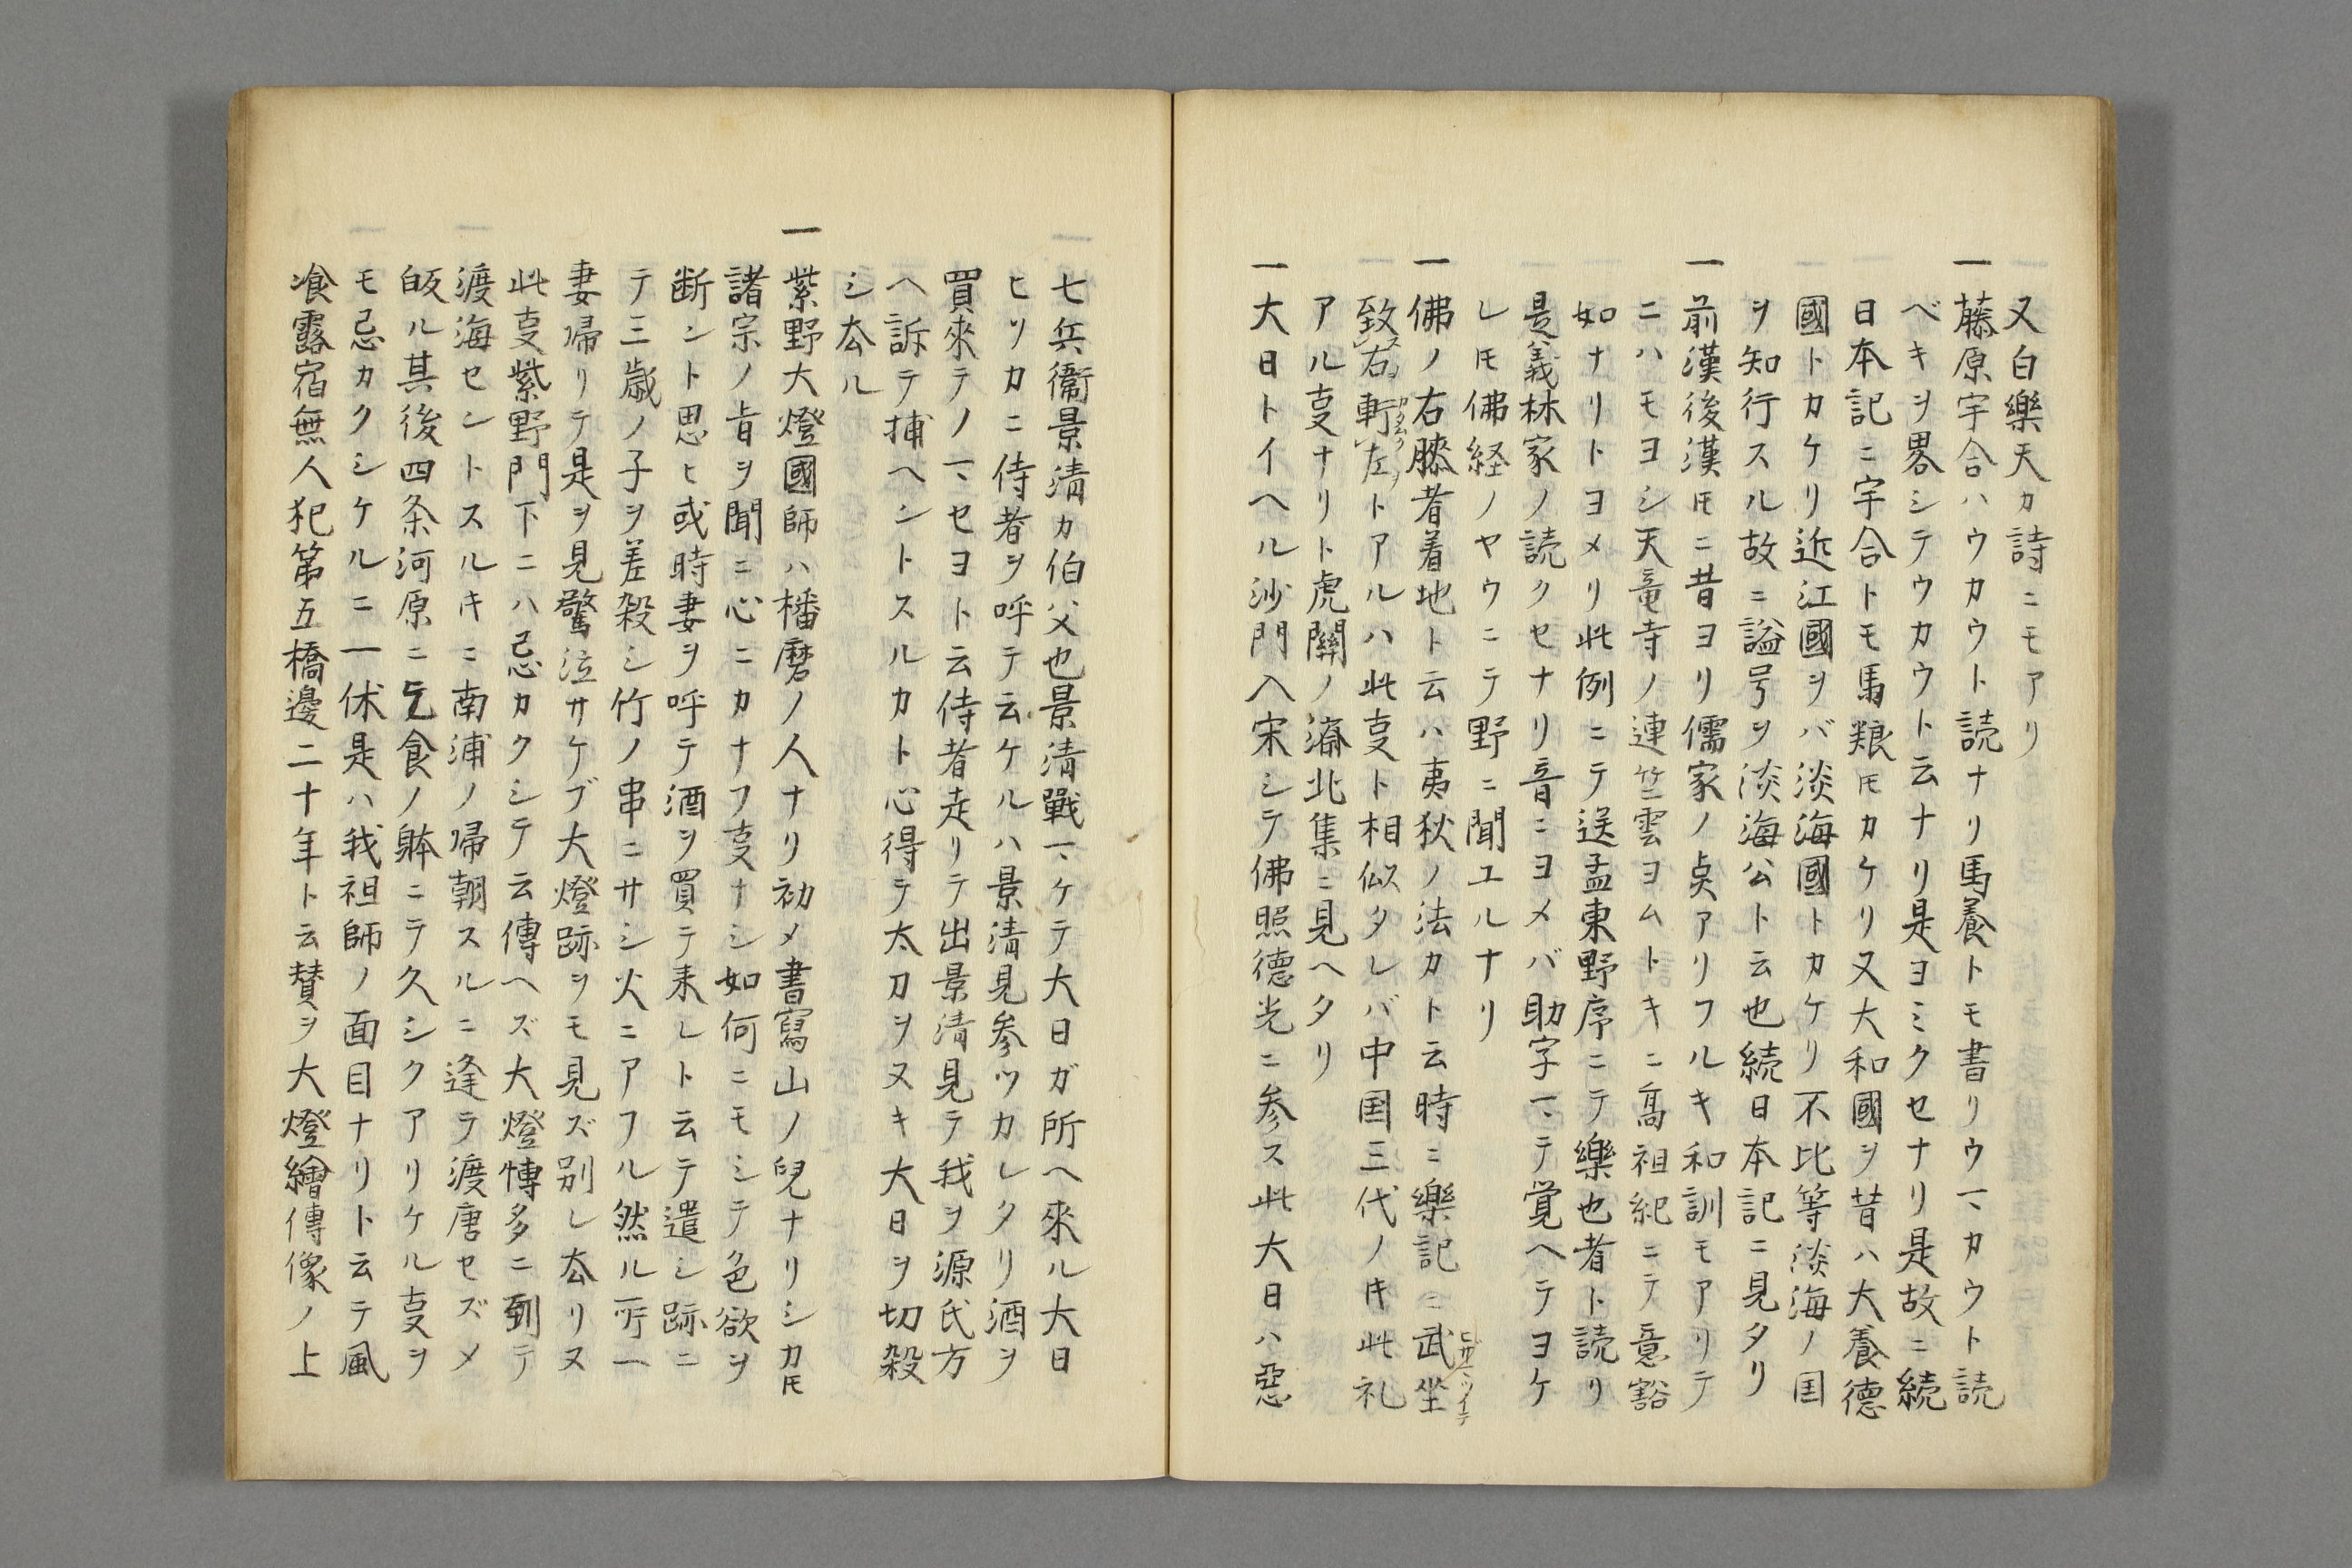 又白樂天カ詩ニモアリ
一藤原宇合ハウカウト読ナリ馬養トモ書リウマカウト読
ベキヲ畧シテウカウト云ナリ是ヨミクセナリ是故ニ続
日本記ニ宇合トモ馬粮モカケリ又大和國ヲ昔ハ大養德
國トカケリ近江國ヲバ淡海國トカケリ不比等淡海ノ国
ヲ知行スル故ニ謚号ヲ淡海公ト云也続日本記ニ見タリ
一前漢後漢ニ昔ヨリ儒家ノ点アリフルキ和訓モアリテ
ニハモヨシ天竜寺ノ連竺雲ヨムトキニ髙祖紀ニテ意豁
如ナリトヨメリ此例ニテ送孟東野序ニテ樂也者ト読リ
是義林家ノ読クセナリ音ニヨメバ助字マテ覚ヘテヨケ
レ𪜈佛経ノヤウニテ野ニ聞エルナリ
一佛ノ右膝着地ト云ハ夷狄ノ法カト云時ニ樂記ニ武坐
致右軒左トアルハ此㕝ト相似タレバ中国三代ノ𪜈此礼
アル㕝ナリト虎關ノ濟北集ニ見ヘタリ
一大日トイヘル沙門入宋シテ佛照德光ニ参ス此大日ハ惡
七兵衞景清カ伯父也景清戰マケテ大日ガ所ヘ來ル大日
ヒソカニ侍者ヲ呼テ云ケルハ景清見参ツカレタリ酒ヲ
買來テノマセヨト云侍者走リテ出景清見テ我ヲ源氏方
ヘ訴テ捕ヘントスルカト心得テ太刀ヲヌキ大日ヲ切殺
シ去ル
一紫野大燈國師ハ播磨ノ人ナリ初メ書寫山ノ兒ナリシカ𪜈
諸宗ノ旨ヲ聞ニ心ニカナフ㕝ナシ如何ニモシテ色欲ヲ
断ント思ヒ或時妻ヲ呼テ酒ヲ買テ来レト云テ遣シ跡ニ
テ三歳ノ子ヲ差殺シ竹ノ串ニサシ火ニアフル然ル所一
妻帰リテ是ヲ見驚泣サケブ大燈跡ヲモ見ズ別レ去リヌ
此㕝紫野門下ニハ忌カクシテ云傳ヘズ大燈博多ニ到テ
渡海セントスルキニ南浦ノ帰朝スルニ逢テ渡唐セズメ
皈ル其後四条河原ニ乞食ノ躰ニテ久シクアリケル㕝ヲ
モ忌カクシケルニ一休是ハ我祖師ノ面目ナリト云テ風
飡露宿無人犯第五橋邊二十年ト云賛ヲ大燈繪傳像ノ上